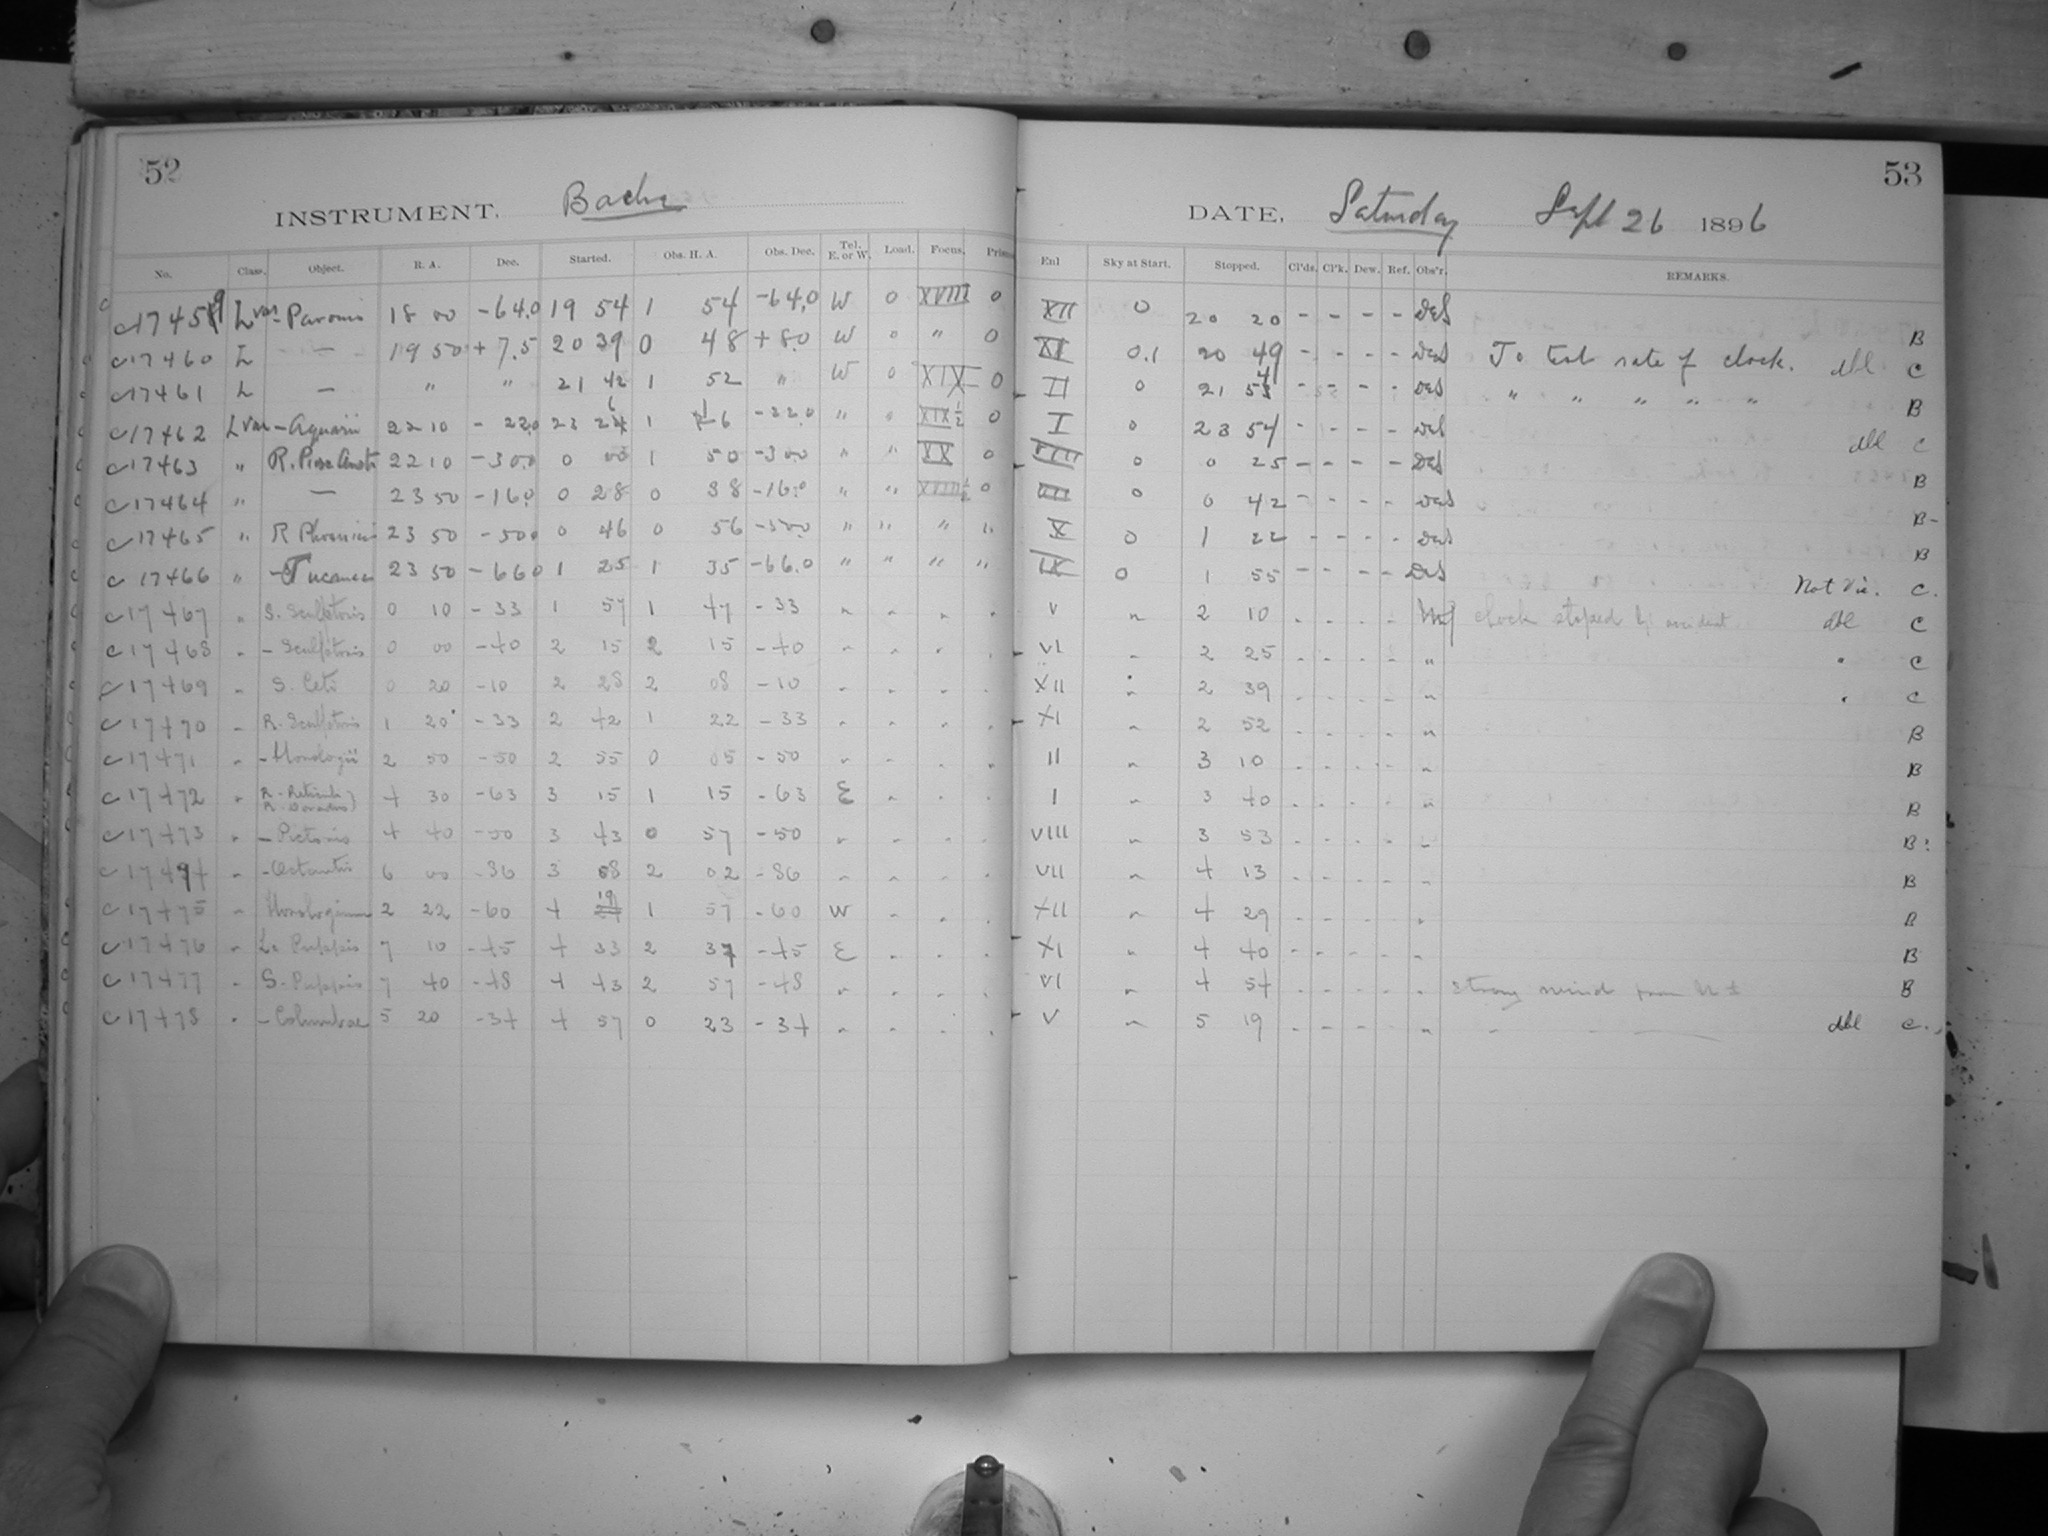 52
INSTRUMENT. Bache
No. Class. Object. R. A. Dec. Started. Obs. H. A. Obs. Dec. Tel. E. or W. Load. Focus. Prism
C 17459 L var - Pavonis 18 00 -64.0 19 54 1 54 -64.0 W 0 XVIII 0
C 17460 L — 19 50 +7.5 20 39 0 48 +8.0 W 0 " 0
C 17461 L — " " 21 42 1 52 " W 0 XIX 0
C 17462 L var - Aquarii 22 10 - 22.0 23 26 1 16 " " XIX½ 0
C 17463 " R. Pisc Austr 22 10 -30.0 0 00 1 50 -30.0 " " XX 0
C 17464 " — 23 50 -16.0 0 28 0 38 -16.0 " " XVIII½ 0
C 17465 " R Phoenicis 23 50 -50.0 0 46 0 56 -50.0 " " " "
C 17466 " - Tucanae 23 50 -66.0 1 25 1 35 -66.0 " " " "
C 17467 " S. Sculptoris 0 10 -33 1 57 1 47 -33 " " " "
C 17468 " - Sculptoris 0 00 -40 2 15 2 15 -40 " " " "
C 17469 " S. Ceti 0 20 -10 2 28 2 08 -10 " " " "
C 17470 " R. Sculptoris 1 20 -33 2 42 1 22 -33 " " " "
C 17471 " - Horologii 2 50 -50 2 55 0 05 -50 " " " "
C 17472 " R. Reticuli R. Doradus } 4 30 -63 3 15 1 15 -63 E " " "
C 17473 " - Pictoris 4 40 -50 3 43 0 57 -50 " " " "
C 17474 " - Octantis 6 00 -86 3 58 2 02 -86 " " " "
C 17475 " Horologium 2 22 -60 4 19 1 57 -60 W " " "
C 17476 " L2 Puppis 7 10 -45 4 33 2 37 -45 E " " "
C 17477 " S. Puppis 7 40 -48 4 43 2 57 -48 " " " "
C 17478 " - Columbae 5 20 -34 4 57 0 23 -34 " " " "
53
DATE, Saturday Sept 26 1896
Enl Sky at Start. Stopped. Cl'ds. Cl'k. Dew. Ref. Obs'r. REMARKS.
XII 0 20 20 - - - - DeS B
XI 0.1 20 49 - - - - DeS To test rate of clock. dbl C
II 0 21 54 - - - - DeS " " " " " B
I 0 23 54 - - - - DeS dbl C
0 0 25 - - - - DeS B
0 0 42 - - - - DeS B-
X 0 1 22 - - - - DeS B
IX 0 1 55 - - - - DeS Not Vis. C.
V " 2 10 - - - - clock stoped by accident dbl C
VI " 2 25 - - - - " " C
XII " 2 39 - - - - " " C
XI " 2 52 - - - - " B
II " 3 10 - - - - " B
I " 3 40 - - - - " B
VIII " 3 53 - - - - " B?
VII " 4 13 - - - - " B
XII " 4 29 - - - - " B
XI " 4 40 - - - - " B
VI " 4 54 - - - - " strong wind from N E B
V " 5 19 - - - - " " dbl C